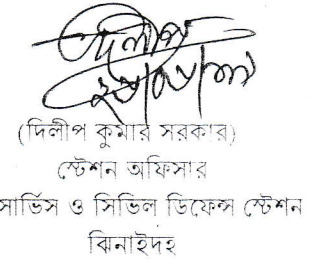 দিলীপ
(দিলীপ কুমার সরকার)
স্টেশন অফিসার
সার্ভিস ও সিভিল ডিফেন্স স্টেশন
ঝিনাইদহ